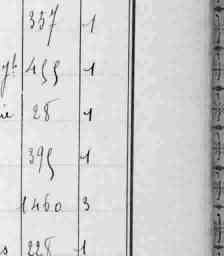 337 1
yt 455 1
ie 28 1
395 1
1460 3
s 228 1